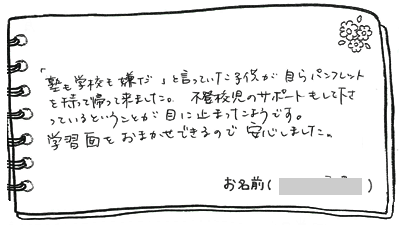 「塾も学校も嫌だ」と言っていた子供が自らパンフレット
を持って帰って来ました。不登校児のサポートもして下さ
っているということが目に止まったようです。
学習面をおまかせできるので安心しました。
お名前（　　　）